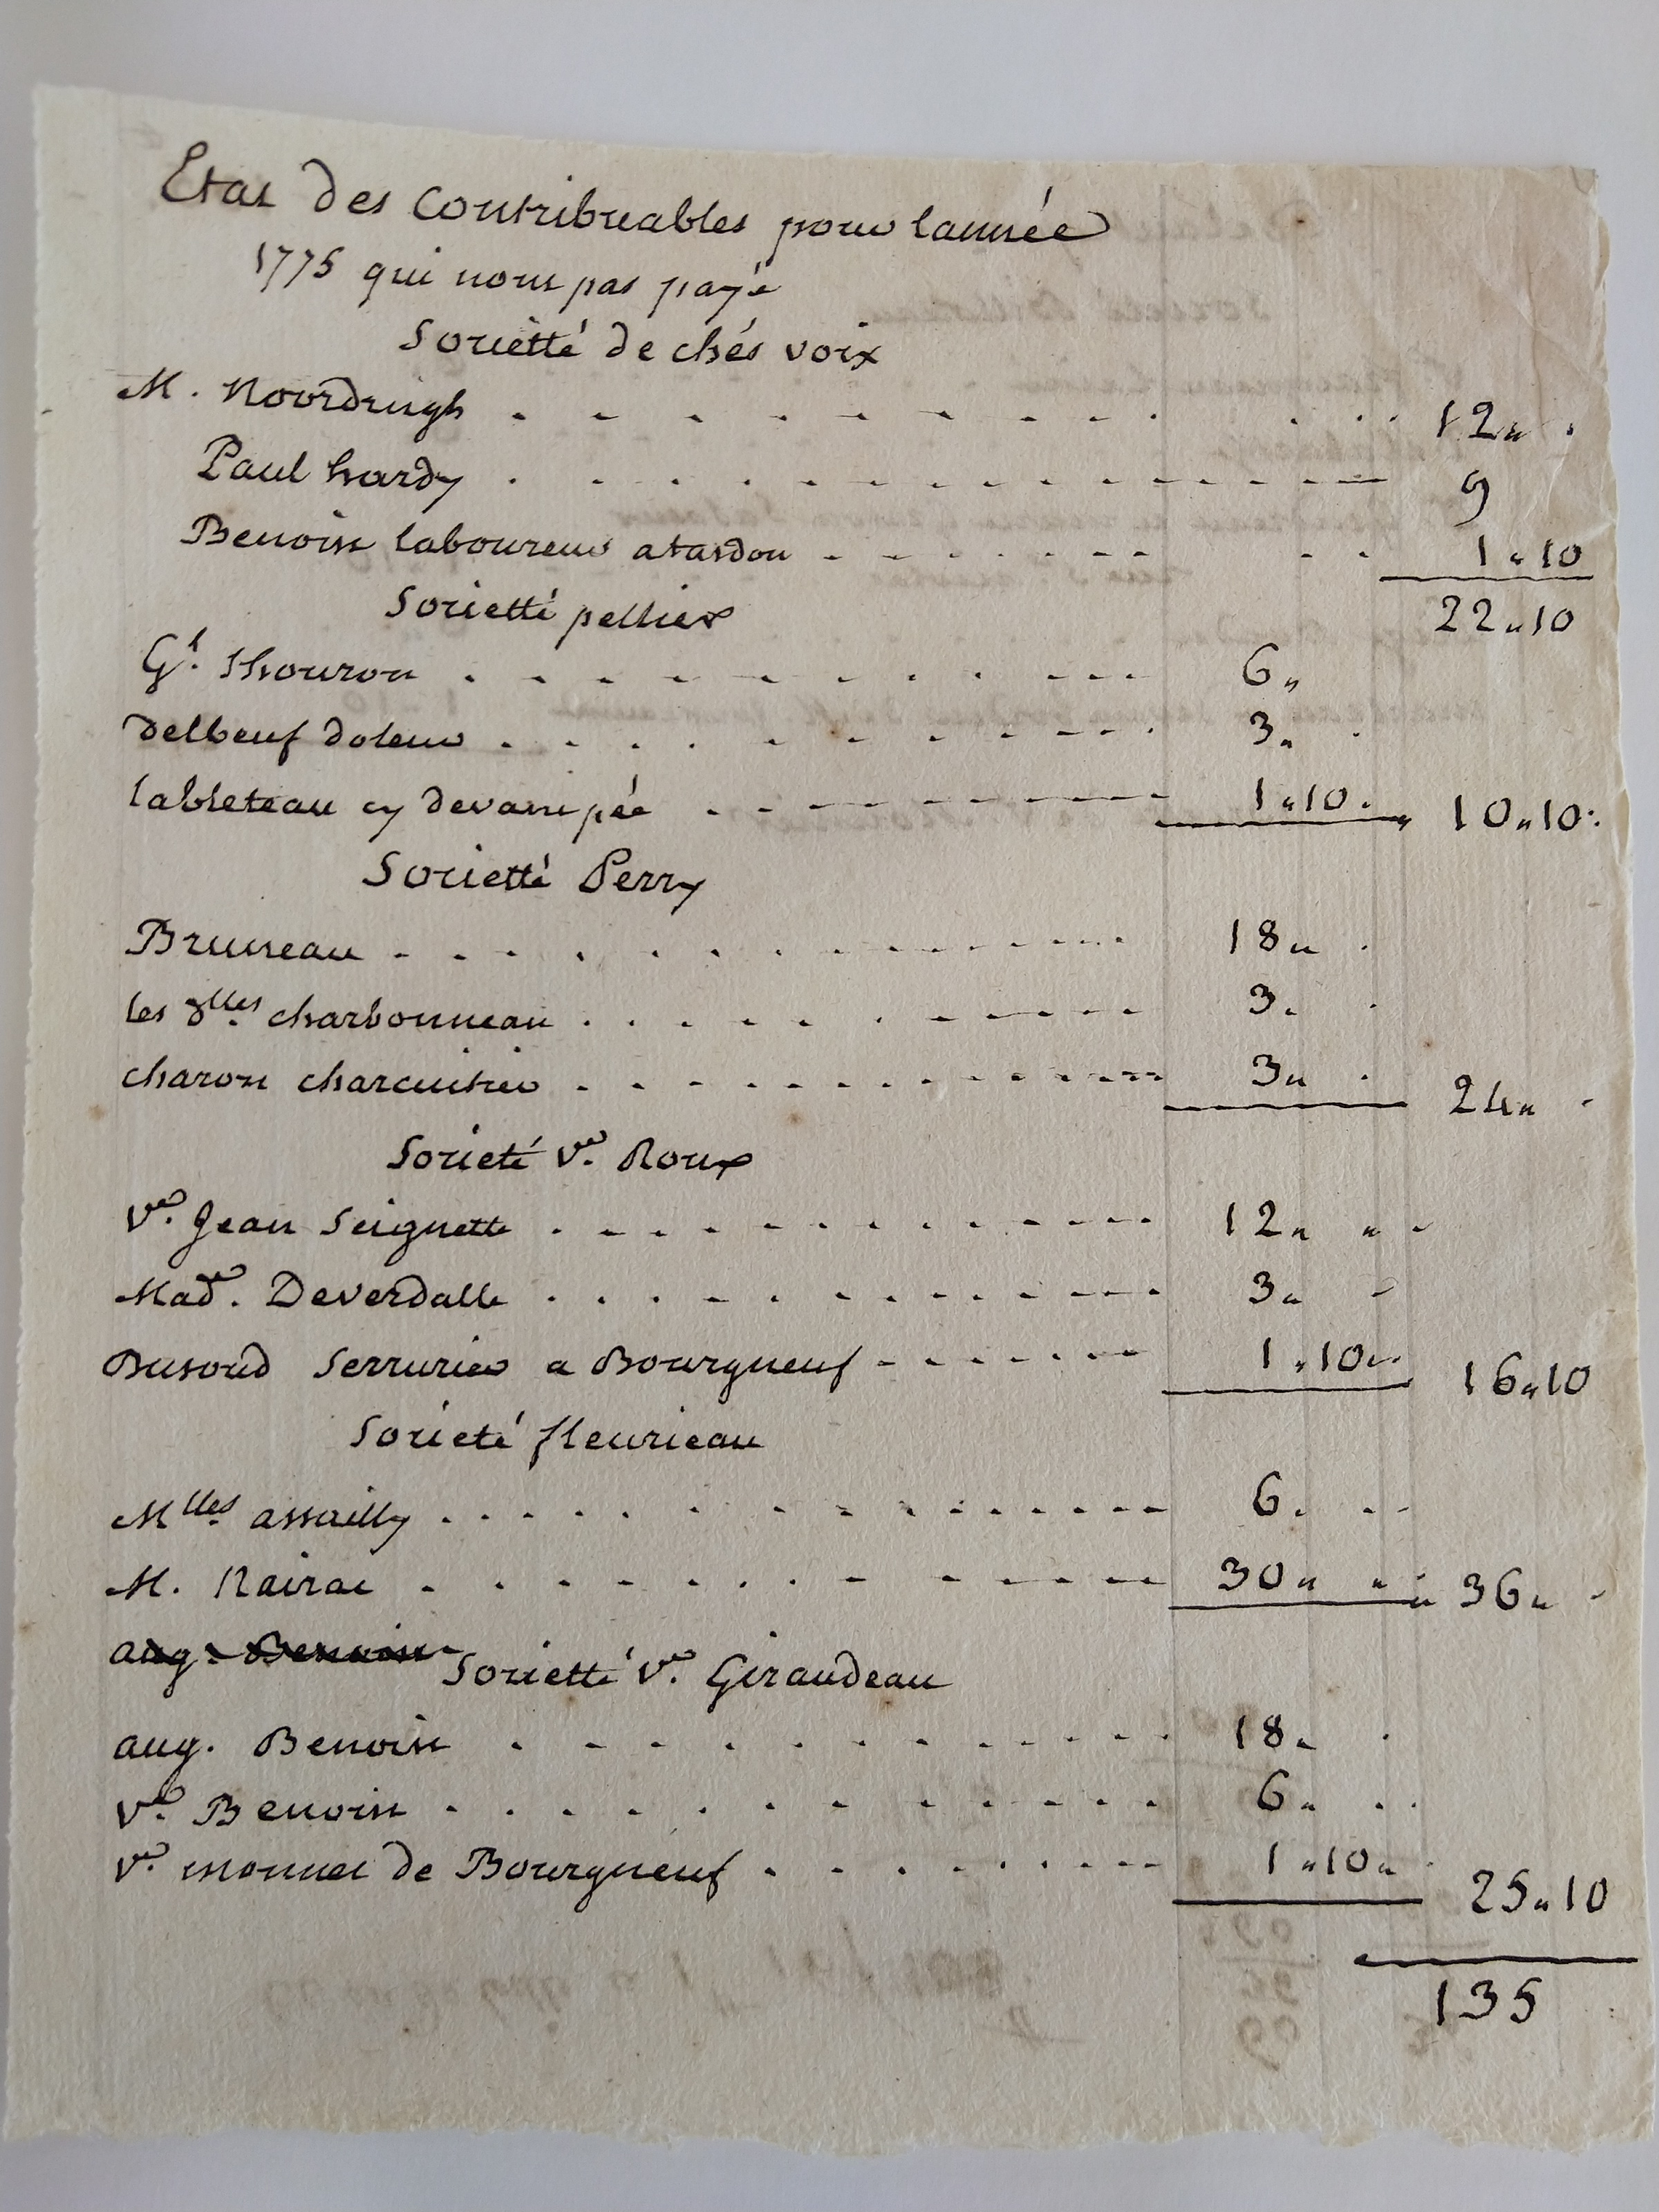 Etat des Contribuables pour lannée
1775 qui nont pas payé
Sociètté de chés voix
M. Noordingh . . . . . . . . . . 12 „ .
Paul hardy . . . . . . . . . . 9
Benoist laboureur a tasdon . . . . . . . . 1 „ 10
22 „ 10
Sociètté pellier
Gt. Thouron . . . . . . . . . . 6 „
delbeuf doleur . . . . . . . . . . 3 „ .
tableteau cy devant pée . . . . . . . . . . 1 „ 10 . „ 10 „ 10 .
Sociètté Perry
Bruneau . . . . . . . . . . 18 „ .
les dlles charbonneau . . . . . . . . . . 3 „ .
charon charcuitier . . . . . . . . . . 3 „ . 24 „ .
Socièté Ve. Roux
Ve. Jean Seignette . . . . . . . . . . 12 „ „ .
Made. Deverdalle . . . . . . . . . . 3 „ .
serrurier a Bourgneuf . . . . . . . 1 „ 10 „ . 16 „ 10
Socièté fleurieau
Mlles assailly . . . . . . . . . . 6 . . .
M. Nairac . . . . . . . . . . 30 „ „ . 36 „ .
aug. Benoist
Sociètté Ve. Giraudeau
aug. Benoist . . . . . . . . . . 18 „ .
Ve. Benoist . . . . . . . . . . 6 „ . .
Ve. monnet de Bourgneuf . . . . . . . . 1 „ 10 „ . 25 „ 10
135